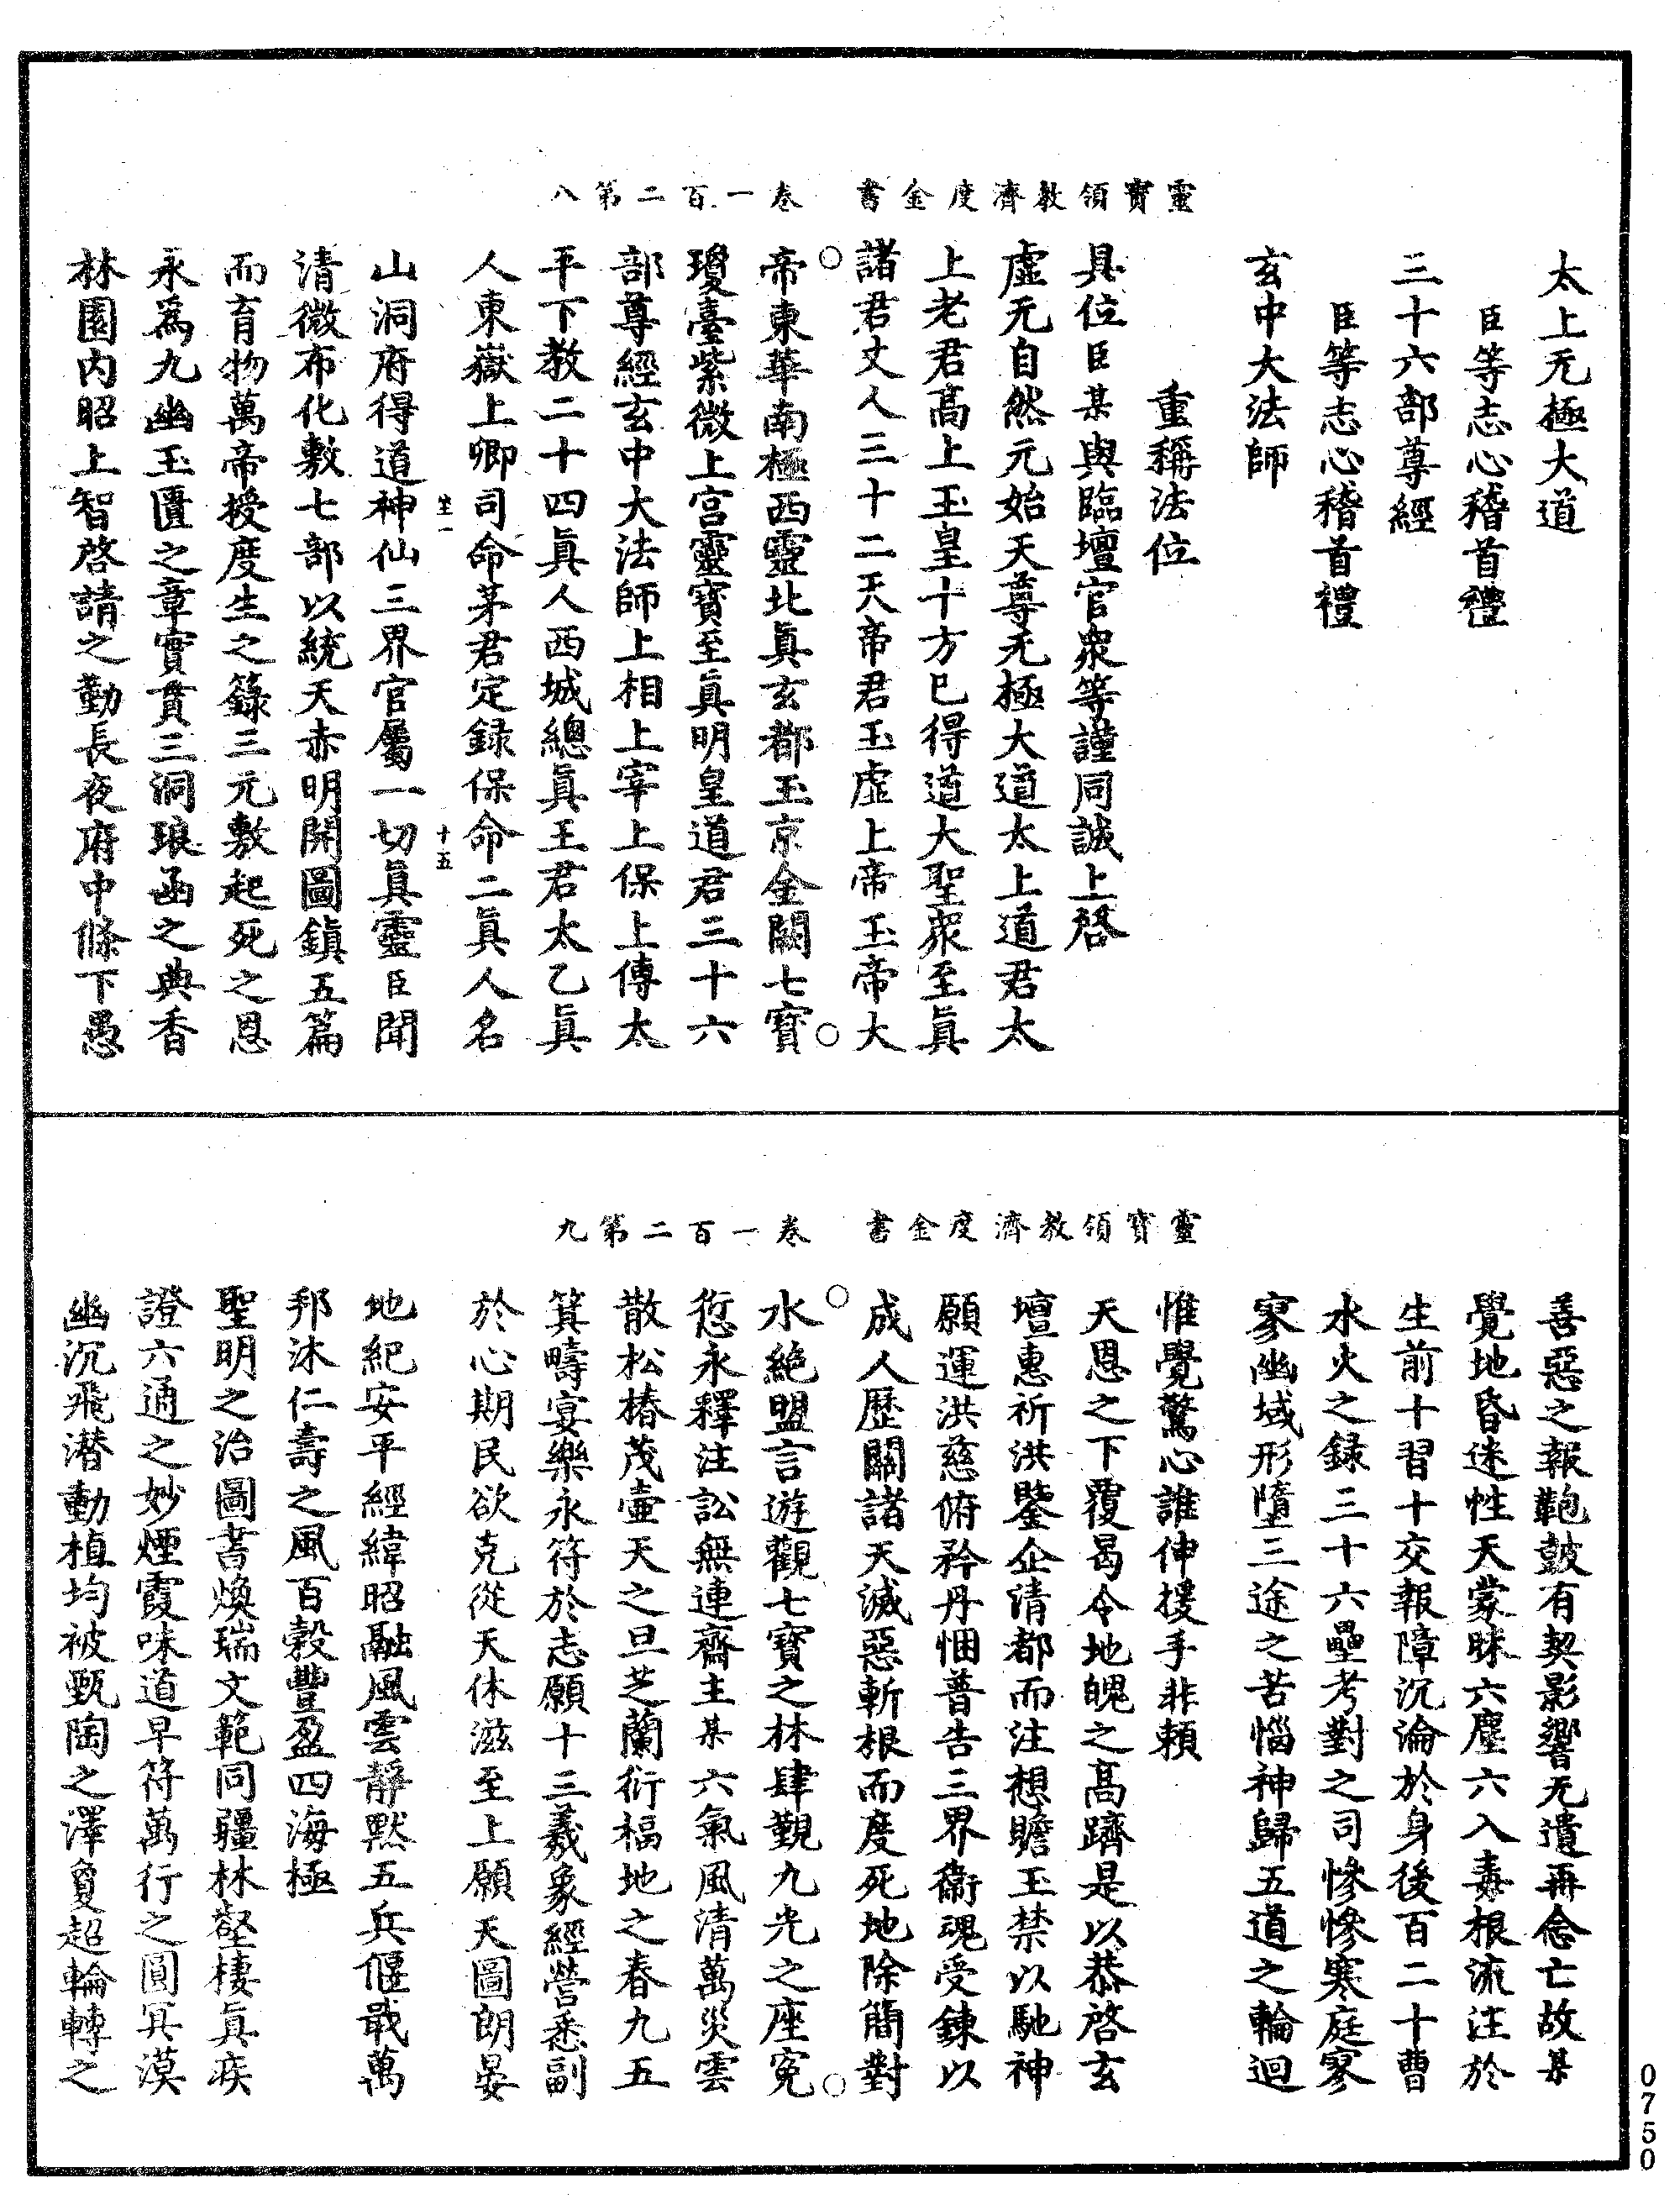 靈寶領教濟度金書　卷一百二第八
太上无極大道
臣等志心稽首禮
三十六部尊經
臣等志心稽首禮
玄中大法師
重稱法位
具位臣某與臨壇官衆等謹同誠上啓
虛无自然元始天尊无極大道太上道君太
上老君高上玉皇十方已得道大聖衆至眞
諸君丈人三十二天帝君玉虛上帝玉帝大
帝東華南極西靈北眞玄都玉京金闕七寶
瓊臺紫微上宮靈寶至眞明皇道君三十六
部尊經玄中大法師上相上宰上保上傅太
平下教二十四眞人西城總眞王君太乙眞
人東嶽上卿司命茅君定録保命二眞人名
坐一　十五
山洞府得道神仙三界官屬一切眞靈臣聞
清微布化敷七部以統天赤明開圖鎭五篇
而育物萬帝授度生之籙三元敷起死之恩
永爲九幽玉匱之章實貫三洞琅函之典香
林園内昭上智啓請之勤長夜府中條下愚
靈寶領教濟度金書　卷一百二第九
善惡之報鞄皷有契影響无遺再念亡故某
覺地昏迷性天蒙昧六塵六入毒根流注於
生前十習十交報障沉淪於身後百二十曹
水火之録三十六壘考對之司慘慘寒庭寥
寥幽域形墮三途之苦惱神歸五道之輪迴
惟覺驚心誰伸援手非頼
天恩之下覆曷令地魄之高躋是以恭啓玄
壇惠祈洪鑒企清都而注想瞻玉禁以馳神
願運洪慈俯矜丹悃普告三界衞魂受鍊以
成人歷關諸天滅惡斬根而度死地除簡對
水絶盟言遊觀七寶之林肆觀九光之座寃
愆永釋注訟無連齋主某六氣風清萬災雲
散松椿茂壷天之旦芝蘭衍福地之春九五
箕疇宴樂永符於志願十三羲象經營悉副
於心期民欲克從天休滋至上願天圖朗晏
地紀安平經緯昭融風雲靜默五兵偃戢萬
邦沐仁壽之風百穀豐盈四海極
聖明之治圖書煥瑞文範同疆林壑棲眞疾
證六通之妙煙霞味道早符萬行之圓冥漠
幽沉飛潛動植均被甄陶之澤夐超輪轉之
0750